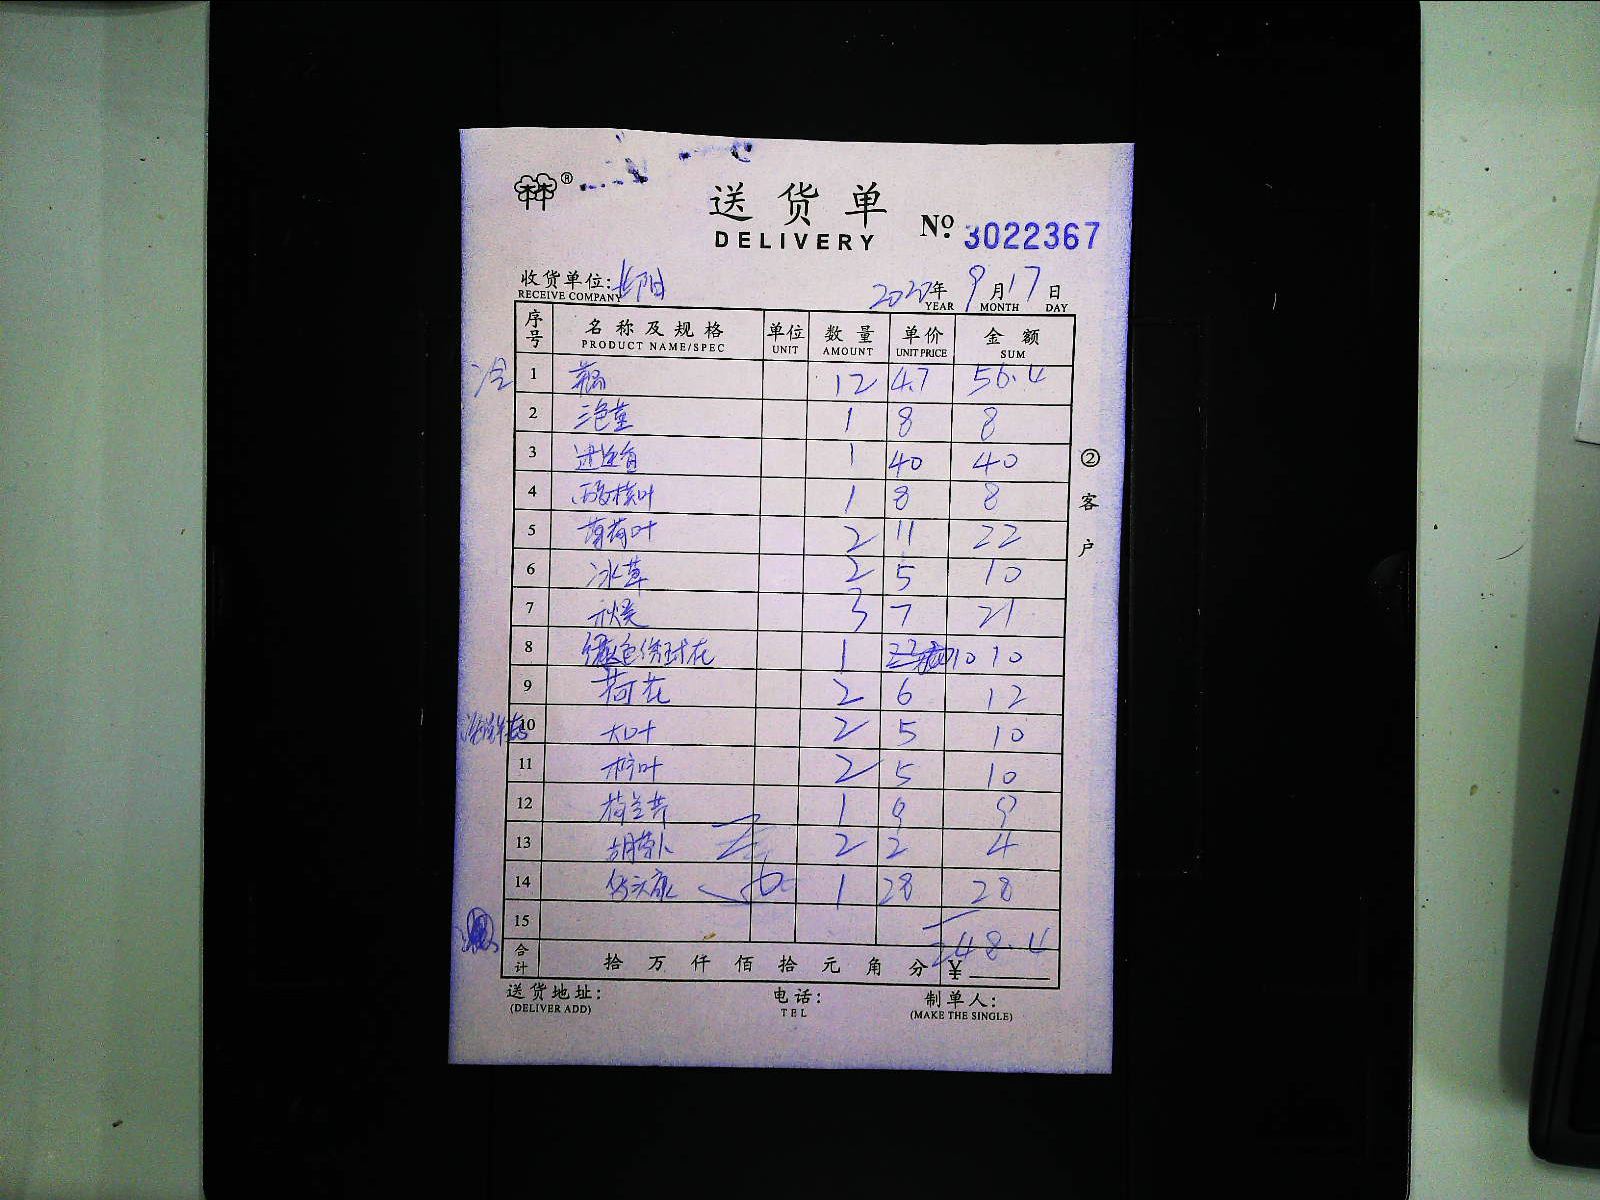 林®
送货单
DELIVERY
№ 3022367
收货单位:
RECEIVE COMPANY
2020年 9月17日
YEAR MONTH DAY
序号 名称及规格 单位 数量 单价 金额
PRODUCT NAME/SPEC UNIT AMOUNT UNIT PRICE SUM
冷 1 12 4.7 56.4
2 三色堇 1 8 8
3 1 40 40
4 1 8 8
5 薄荷叶 2 11 22
6 冰草 2 5 10
7 秋葵 3 7 21
8 1 10 10
9 荷花 2 6 12
10 大叶 2 5 10
11 2 5 10
12 荷兰芹 1 9 9
13 胡萝卜 2 2 4
14 1 28 28
15
248.4
合计 拾 万 仟 佰 拾 元 角 分 ¥
② 客户
送货地址: 电话: 制单人:
(DELIVER ADD) TEL (MAKE THE SINGLE)